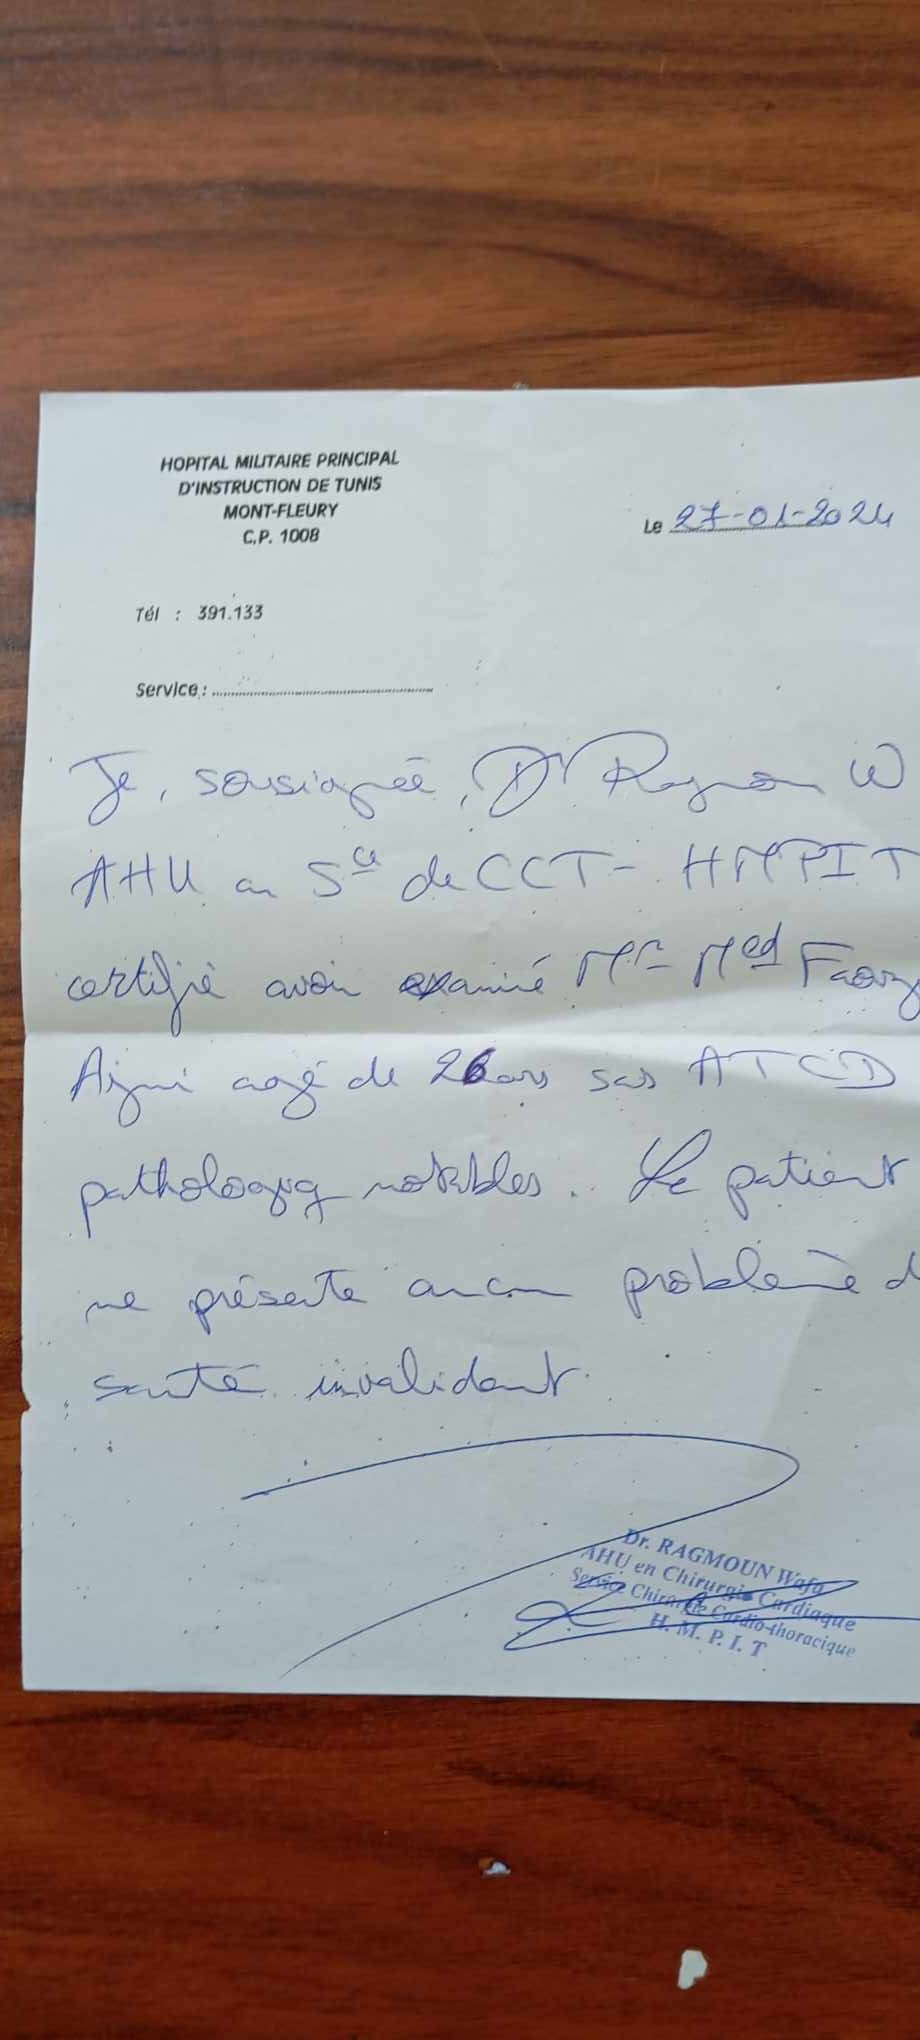 HOPITAL MILITAIRE PRINCIPAL
D'INSTRUCTION DE TUNIS
MONT-FLEURY
C.P. 1008
Le 27-01-2024
Tél : 391.133
Service :
Je, soussignée, Dr Ragmoun W
AHU au Sce de CCT - HMPIT
certifie avoir examiné Mr Med
agé de 26 ans sans ATCD
pathologiq notables. Le patient
ne présente aucun problème d
santé invalidant.
Dr. RAGMOUN Wafa
AHU en Chirurgie Cardiaque
Service Chirurgie Cardio-thoracique
H. M. P. I. T